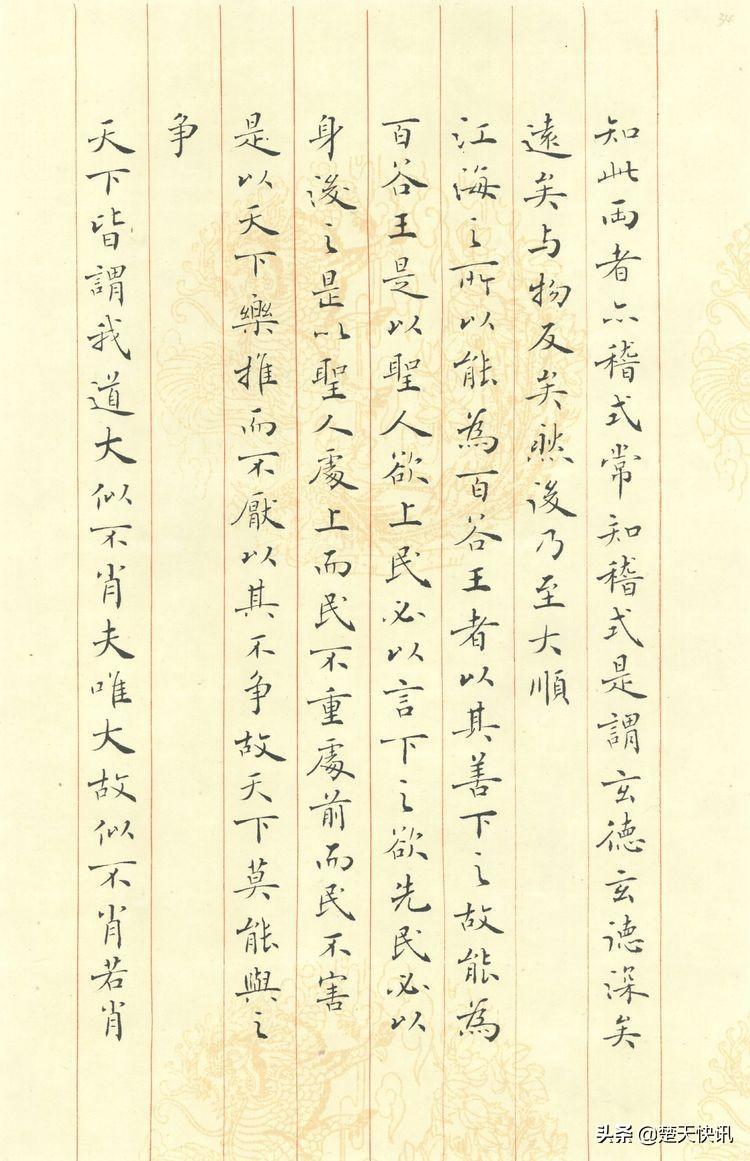 34
知此兩者亦稽式常知稽式是謂玄德玄德深矣
遠矣与物反矣然後乃至大順
江海之所以能為百谷王者以其善下之故能為
百谷王是以聖人欲上民必以言下之欲先民必以
身後之是以聖人處上而民不重處前而民不害
是以天下樂推而不厭以其不争故天下莫能與之
争
天下皆謂我道大似不肖夫唯大故似不肖若肖
头条 @楚天快讯